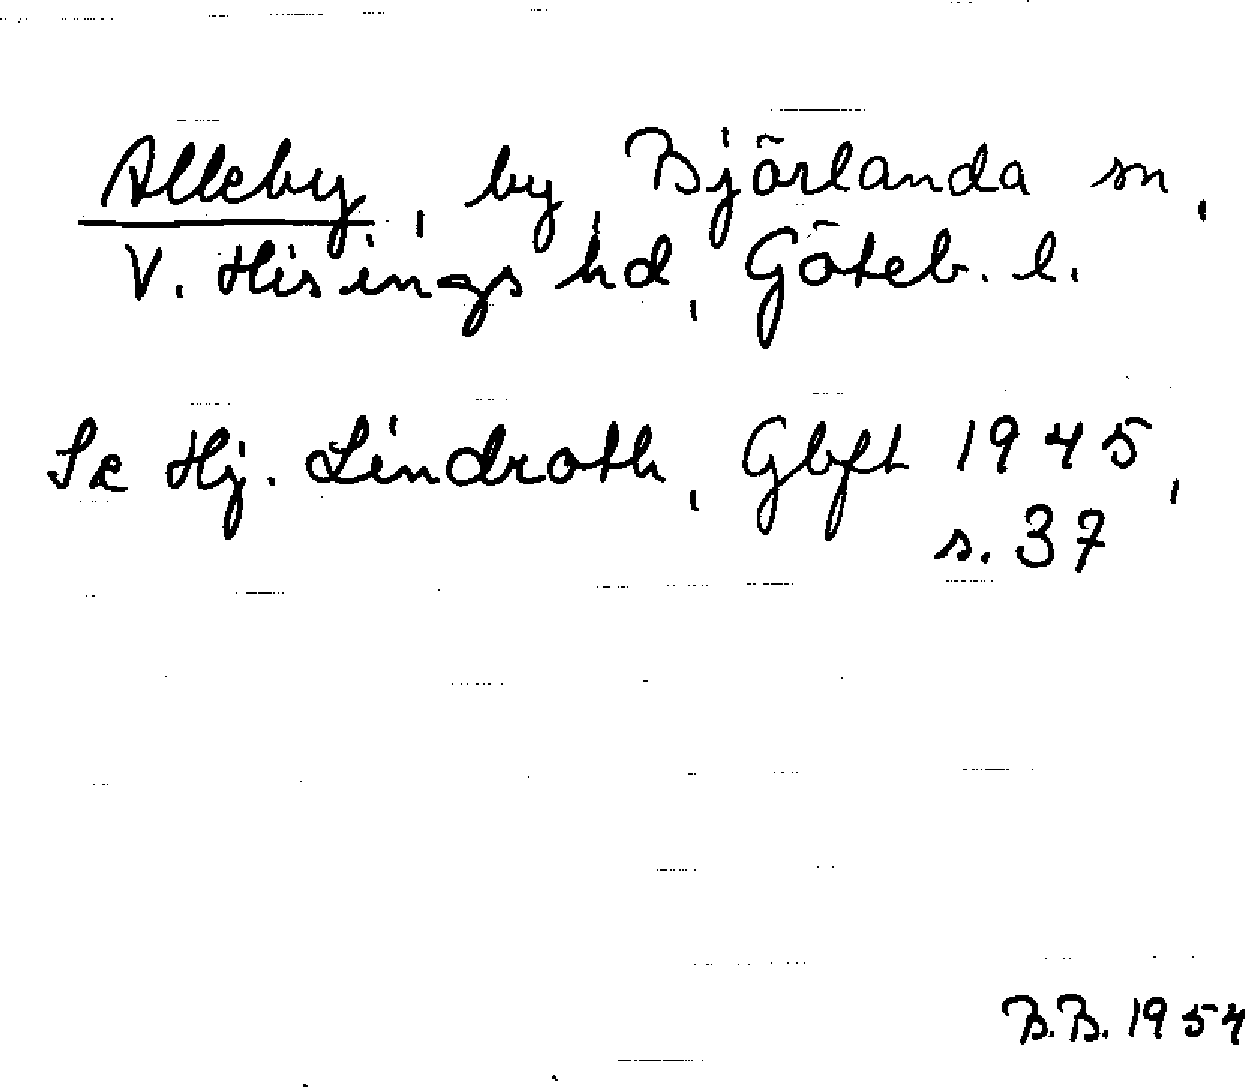 Alleby, by, Björlanda sn,
V. Hisings hd, Göteb. l.
Se Hj. Lindroth, Gbft 1945,
s. 37
B.B. 1954